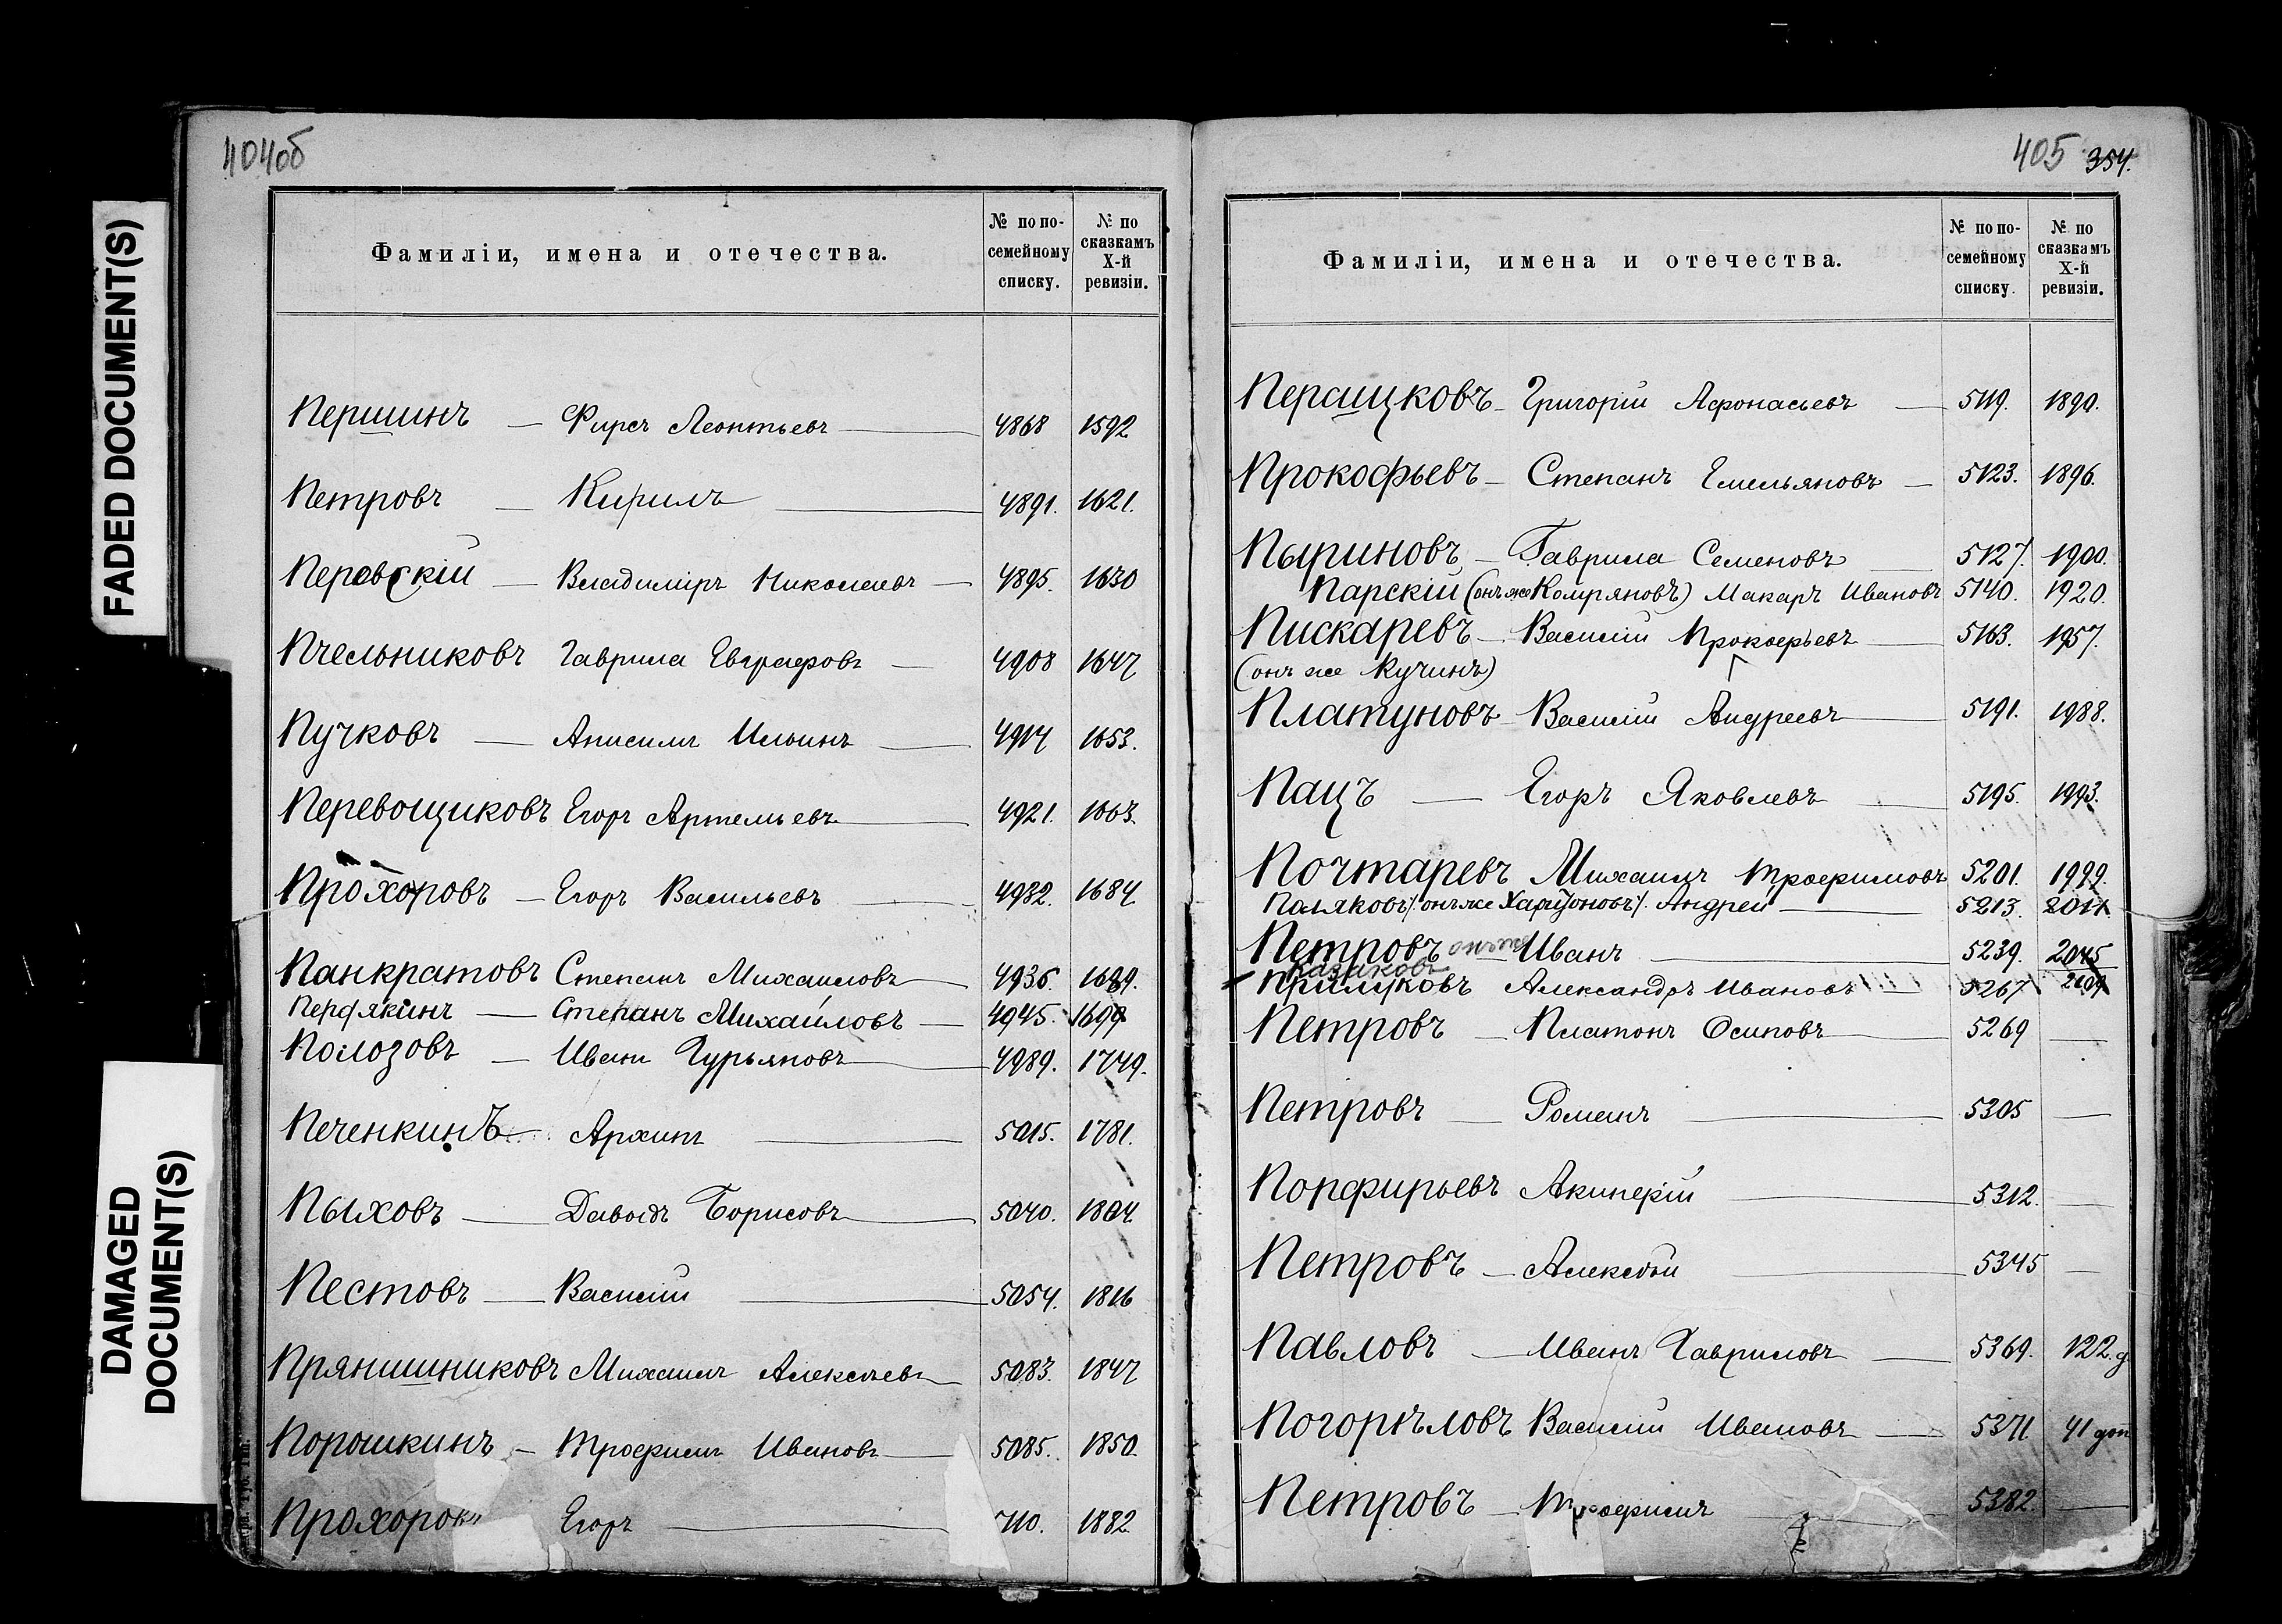 FADED DOCUMENT(S)
DAMAGED
DOCUMENT(S)
404об
Фамиліи, имена и отечества.
№ по по-
семейному
списку.
№ по
сказкамъ
X-й
ревизіи.
Першинъ — Фирсъ Леонтьевъ 4868 1592
Петровъ — Кирилъ 4891. 1621.
Перовскій — Владиміръ Николаевъ 4895. 1630
Пчельниковъ Гаврила Евграфовъ 4908 1647
Пучковъ — Анисимъ Ильинъ 4914 1653.
Перевощиковъ Егоръ Артемьевъ 4921. 1663.
Прохоровъ — Егоръ Васильевъ 4932. 1684
Панкратовъ Степанъ Михаиловъ 4936. 1689.
Перфякинъ — Степанъ Михаиловъ 4945. 1699
Полозовъ — Иванъ Гурьяновъ 4989. 1749.
Печенкинъ — Архипъ 5015. 1781.
Пыховъ — Давыдъ Борисовъ 5040. 1804.
Пестовъ — Василій 5054. 1816
Прянишниковъ Михаилъ Алексѣевъ 5083. 1847
Порошкинъ — Трофимъ Ивановъ 5085. 1850.
Егоръ 1882
405 354.
Фамиліи, имена и отечества.
№ по по-
семейному
списку.
№ по
сказкамъ
X-й
ревизіи.
Перащковъ — Григорій Афонасьевъ 5119. 1890.
Прокофьевъ — Степанъ Емельяновъ 5123. 1896.
Пыриновъ — Гаврила Семеновъ 5127. 1900.
Парскій (онъ же Компряновъ) Макаръ Ивановъ 5140. 1920.
Пискаревъ — Василій Прокофьевъ 5163. 1957.
(онъ же Кучинъ)
Платуновъ — Василій Андреевъ 5191. 1988.
Пацъ — Егоръ Яковлевъ 5195. 1993.
Почтаревъ Михаилъ Трофимовъ 5201. 1999.
Поляковъ /онъ же Харитоновъ/. Андрей 5213. 2011.
Петровъ онъ же Иванъ 5239. 2045
Казаковъ
Прилуковъ Александръ Ивановъ 5267
Петровъ — Платонъ Осиповъ 5269 —
Петровъ — Романъ 5305 —
Порфирьевъ Акипсій 5312. —
Петровъ — Алексѣй 5345 —
Павловъ — Иванъ Гавриловъ 5369. 122.д
Погорѣловъ Василій Ивановъ 5371. 41 доп
Петровъ — Трофимъ 5382. —